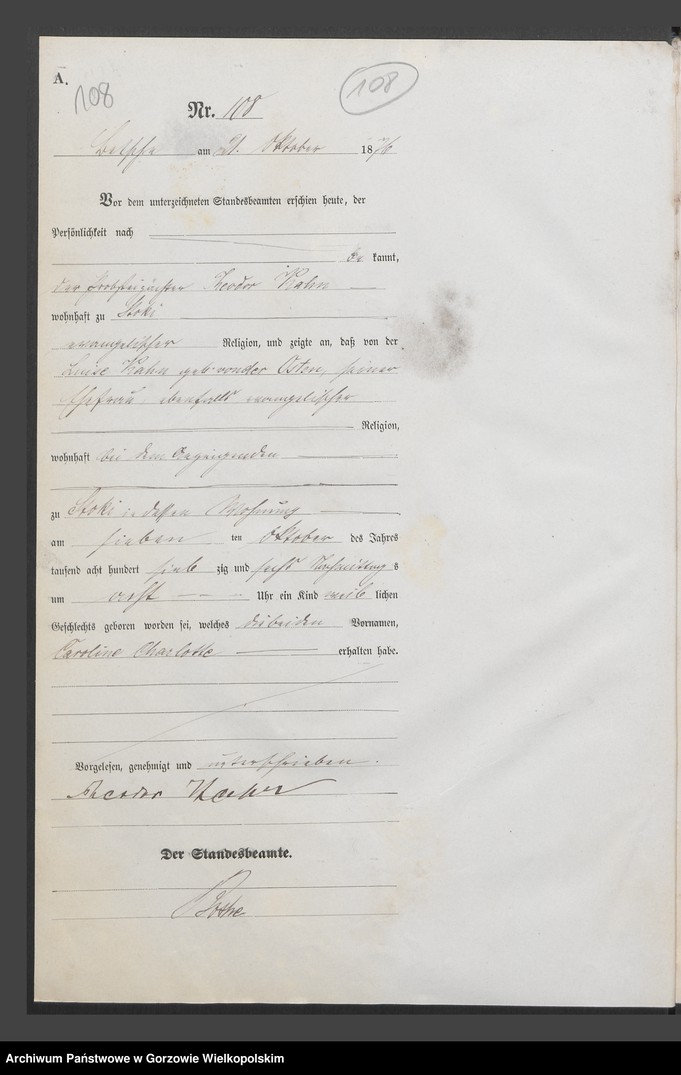 A.
108
108
Nr. 108
Betsche am 21. Oktober 1876
Vor dem unterzeichneten Standesbeamten erschien heute, der
Persönlichkeit nach
be kannt,
der Probsteipächter Theodor Kahn
wohnhaft zu Stoki
evangelischer Religion, und zeigte an, daß von der
Luise Kahn geb. von der Osten, seiner
Ehefrau, ebenfalls evangelischer
Religion,
wohnhaft bei dem Anzeigenden
zu Stoki in dessen Wohnung
am sieben ten Oktober des Jahres
tausend acht hundert sieb zig und sechs Nachmittag s
um acht Uhr ein Kind weib lichen
Geschlechts geboren worden sei, welches die beiden Vornamen,
Caroline Charlotte erhalten habe.
Vorgelesen, genehmigt und unterschrieben.
Theodor
Der Standesbeamte.
Archiwum Państwowe w Gorzowie Wielkopolskim